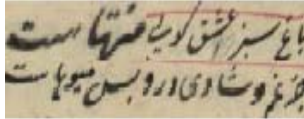 باغ سبز عشق کو بی منتهاست
جز غم و شادی درو بس میوهاست